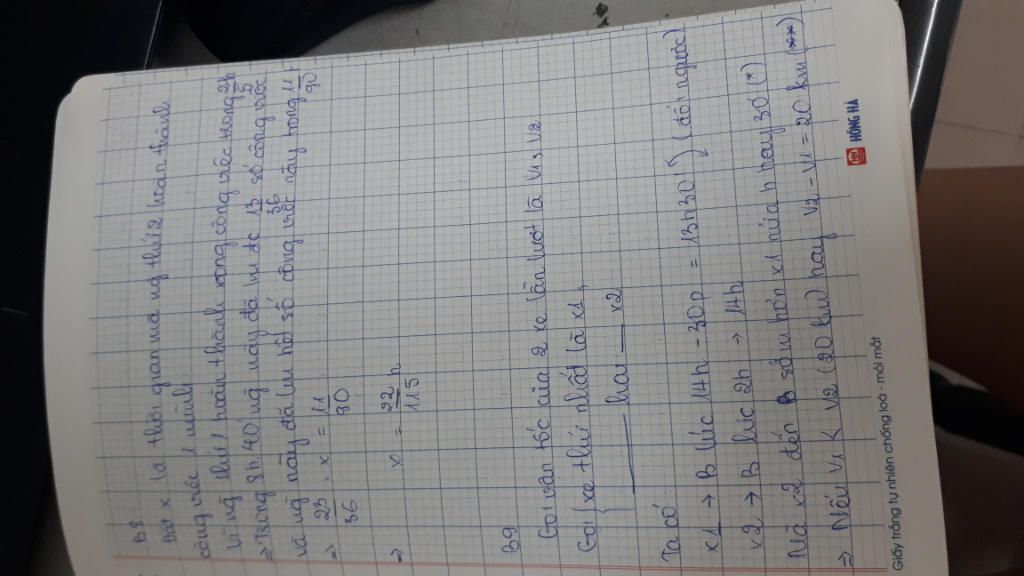 B8.
Đặt x là thời gian mà ng thứ 2 hoàn thành
công việc 1 mình
Vì ng thứ 1 hoàn thành xong công việc trong 2h/5
=> Trong 8h40' ng này đã làm đc 13/36 số công việc
và ng này đã làm hết số công việc này trong 11/90
=> 23/36 . x = 11/90
=> x = 22/115 h
B9
Gọi vận tốc của 2 xe lần lượt là V1, V2
Gọi { xe thứ nhất là x1,
hai x2
Ta có
x1 → B lúc 14h - 30p = 13h30') (đổi ngược)
x2 → B lúc 2h → 14h
Mà x2 đến B sớm hơn x1 nửa h hay 30' (*)
=> Nếu V1 < V2 (20 km) hay V2 - V1 = 20 km (**)
Giấy trắng tự nhiên chống loá - mỏi mắt
HỒNG HÀ